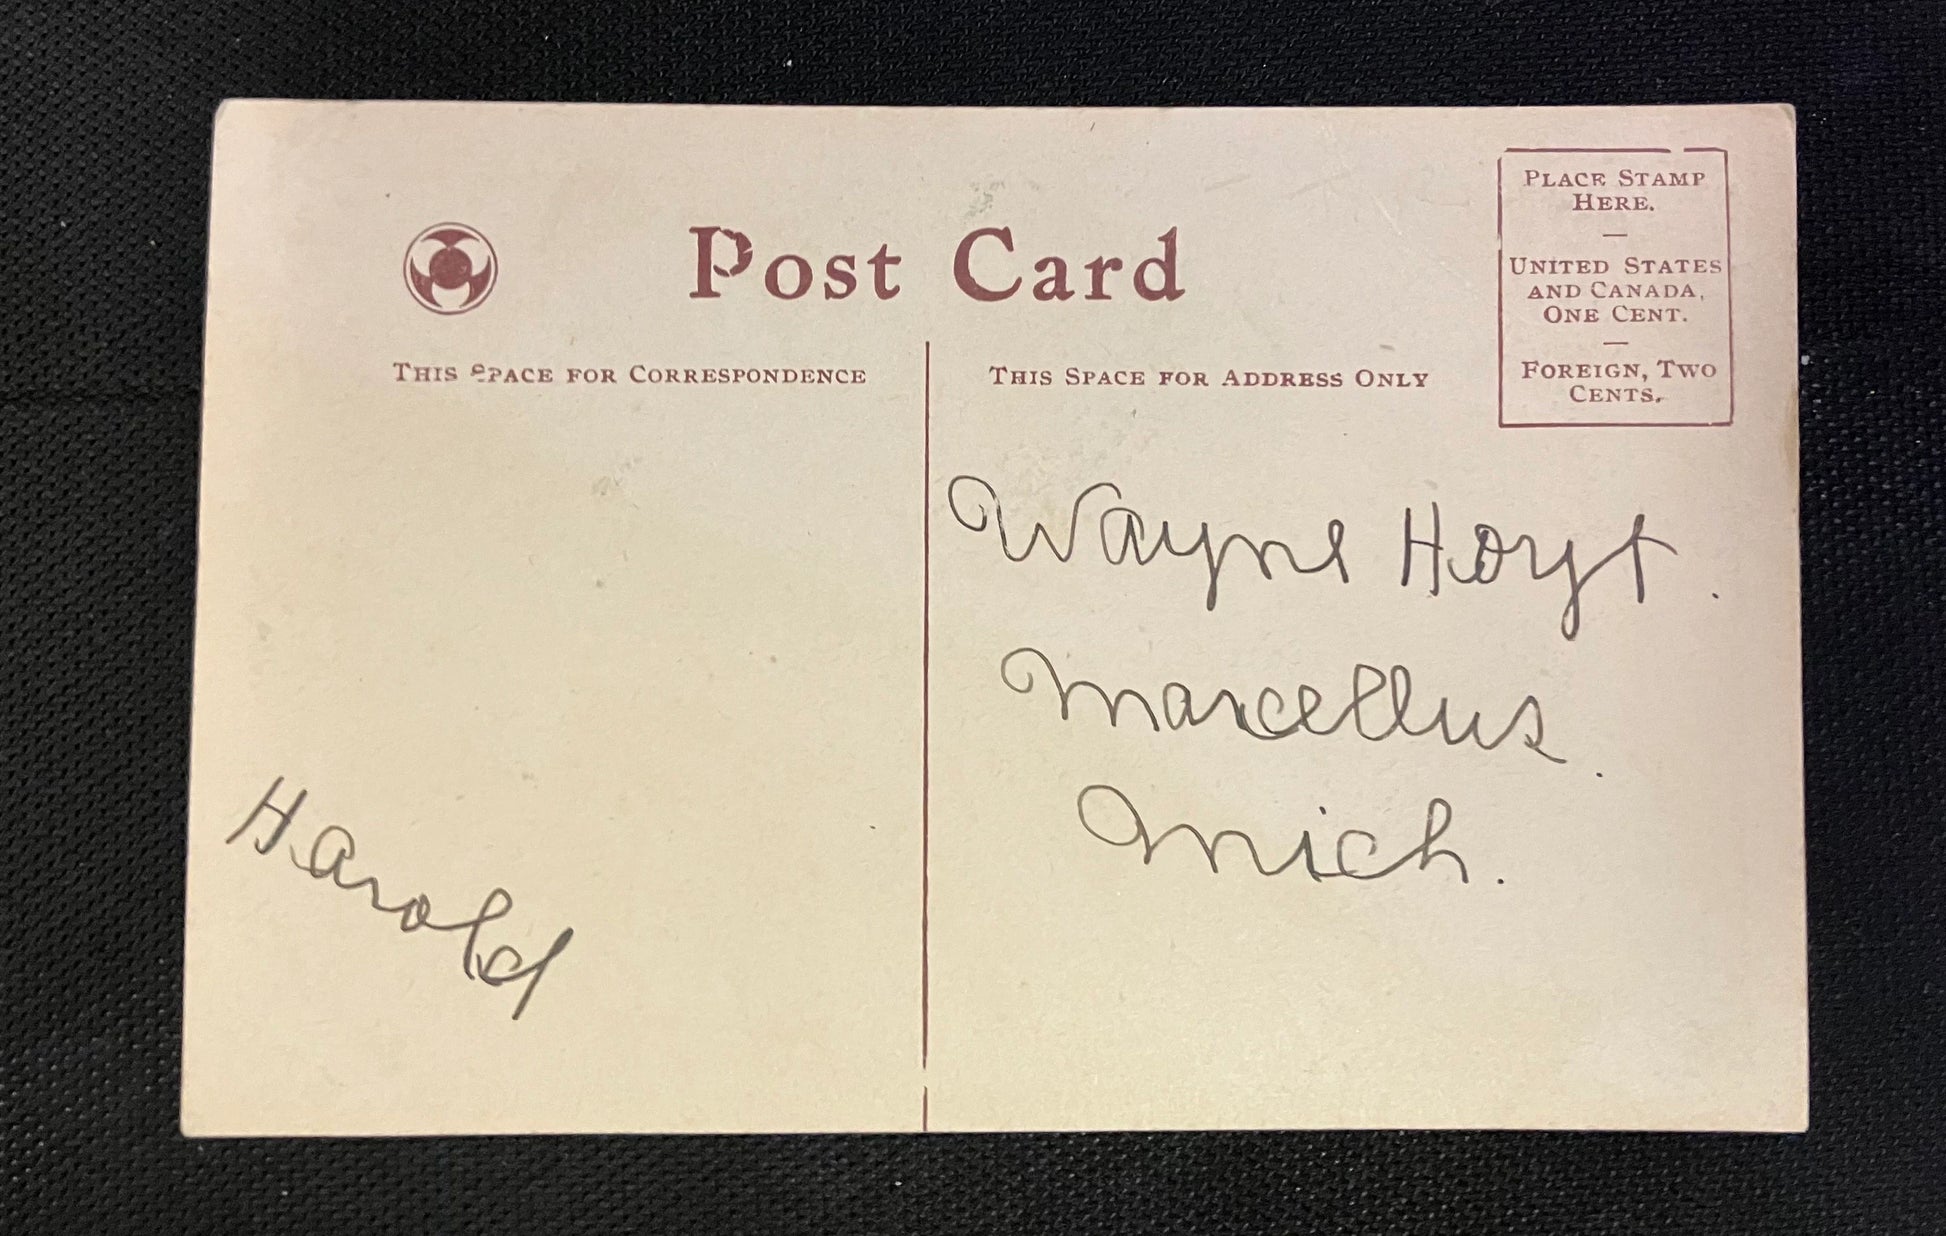 Post Card
PLACE STAMP
HERE.
—
UNITED STATES
AND CANADA,
ONE CENT.
—
FOREIGN, TWO
CENTS.
THIS SPACE FOR CORRESPONDENCE
THIS SPACE FOR ADDRESS ONLY
Wayne Hoyt.
Marcellus.
Mich.
Harold